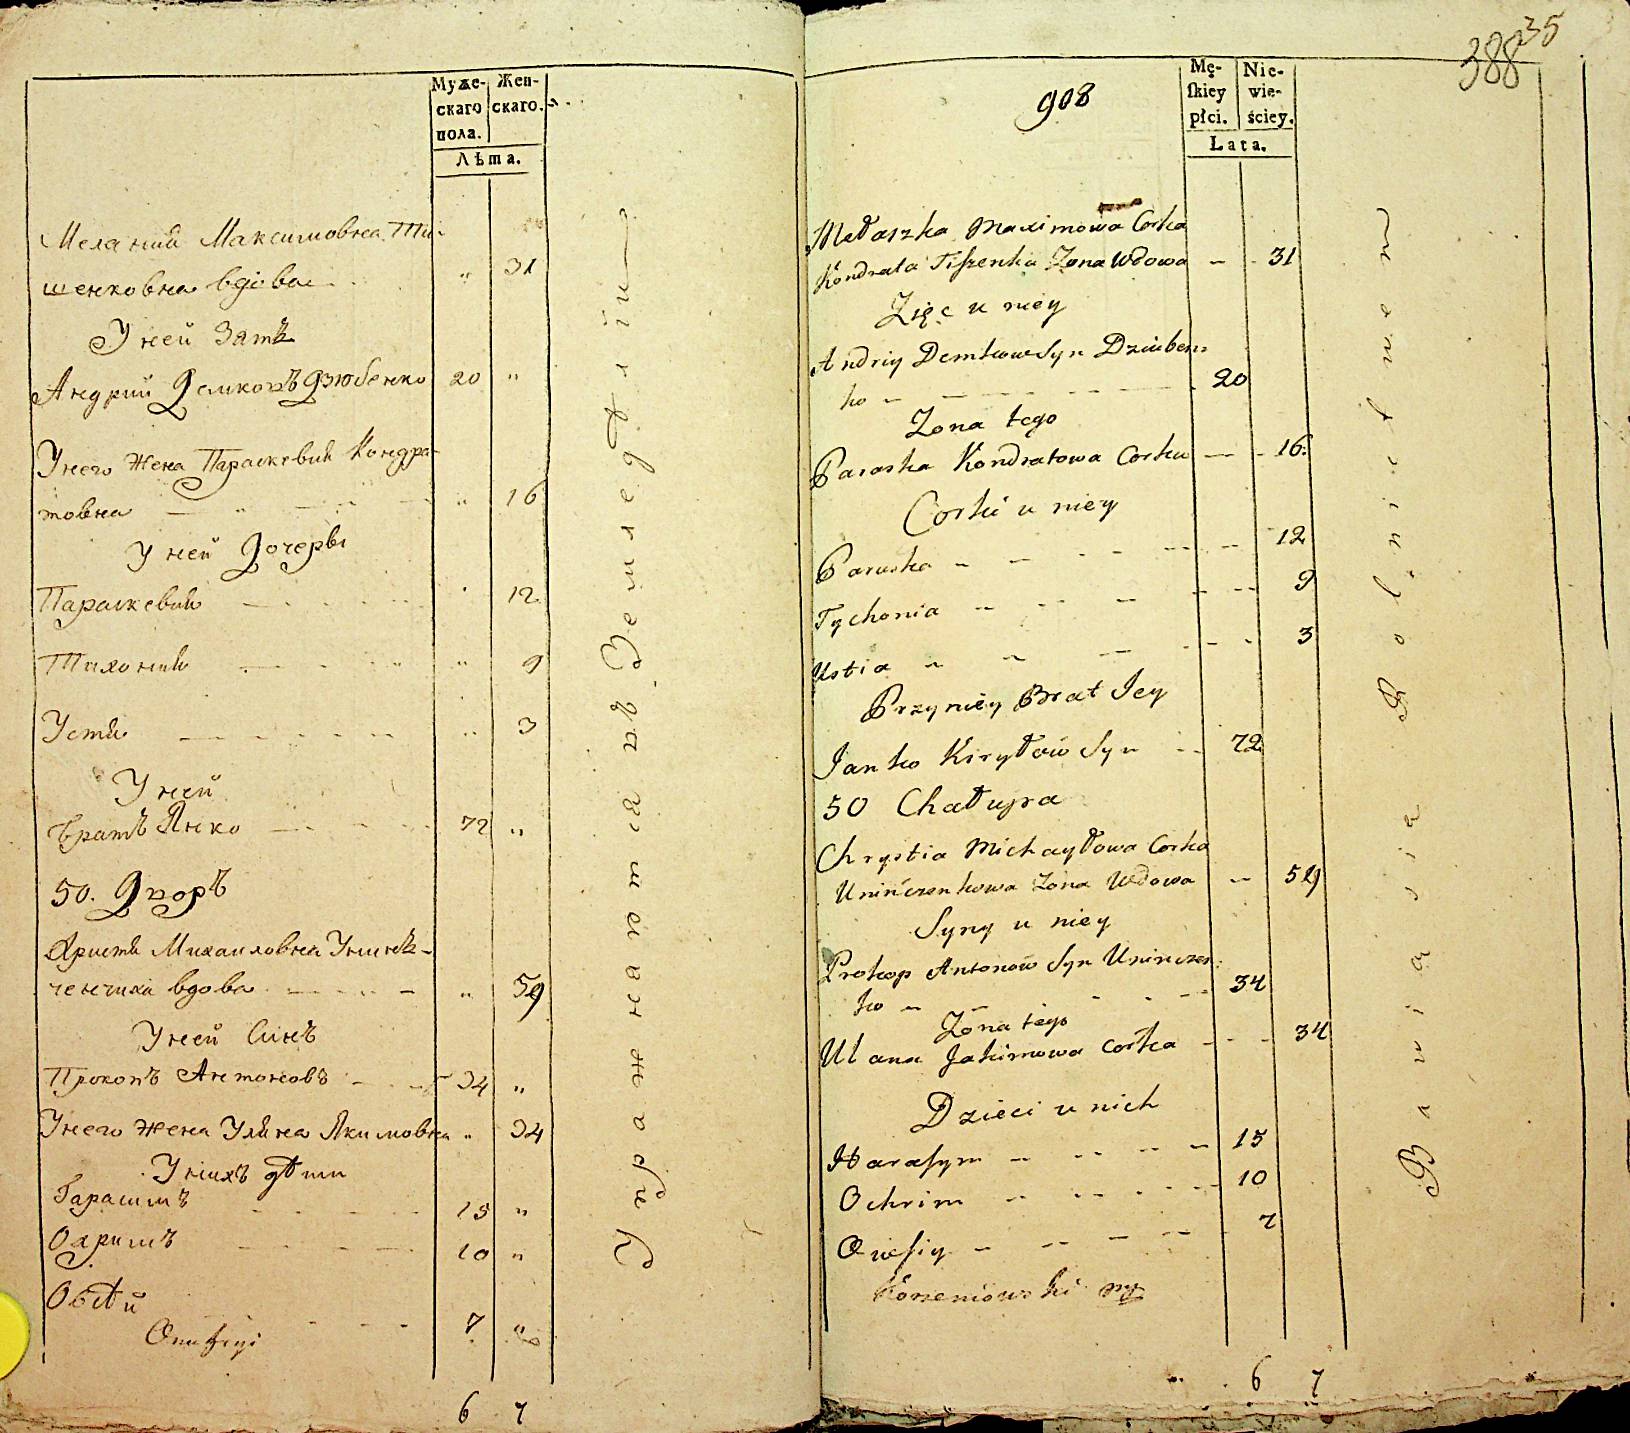 Муже-
скаго
пола.
Жен-
скаго.
Лѣта.
Меланий Максимовна Ти-
шенковна вдова „ 31
У ней Зять
Андрий Демковъ Дзюбенко 20 „
У него Жена Параскевия Кондра-
товна „ 16
У ней Дочеры
Параскевия 12
Тихония „ 9
Устия „ 3
У ней
братъ Янко 72 „
50. Дворъ
Христя Михаиловна Унинъ-
ченчиха вдова „ 59
У ней Синъ
Прокопъ Антоновъ 34 „
У него Жена Улияна Якимовна „ 34
У нихъ дѣти
Гарасимъ 15 „
Охримъ 10 „
7 „
6 7
Упражнаются въ Земледѣлїи
388
35
908
Mę-
ſkiey
płci.
Nie-
wie-
ściey.
Lata.
Mełaszka Maximowa Corka
Kondrata Tiszenka Zona Wdowa 31
Zięć u niey
Andriy Demkow Syn Dziuben:
ko 20
Zona tego
Paraska Kondratowa Corka 16
Corki u niey
Paraska 12
Tychonia 9
Ustia 3
Przy niey Brat Jey
Janko Kiryłow Syn 72
50 Chałupa
Chrystia Michayłowa Corka
Uninczenkowa Zona Wdowa 59
Syny u niey
Prokop Antonow Syn Uninczen:
ko 34
Zona tego
Ulana Jakimowa Corka 34
Dzieci u nich
Harasym 15
Ochrim 10
Owsiy 7
Korzeniowski mp
6 7
Bawia sia Rolnictwem